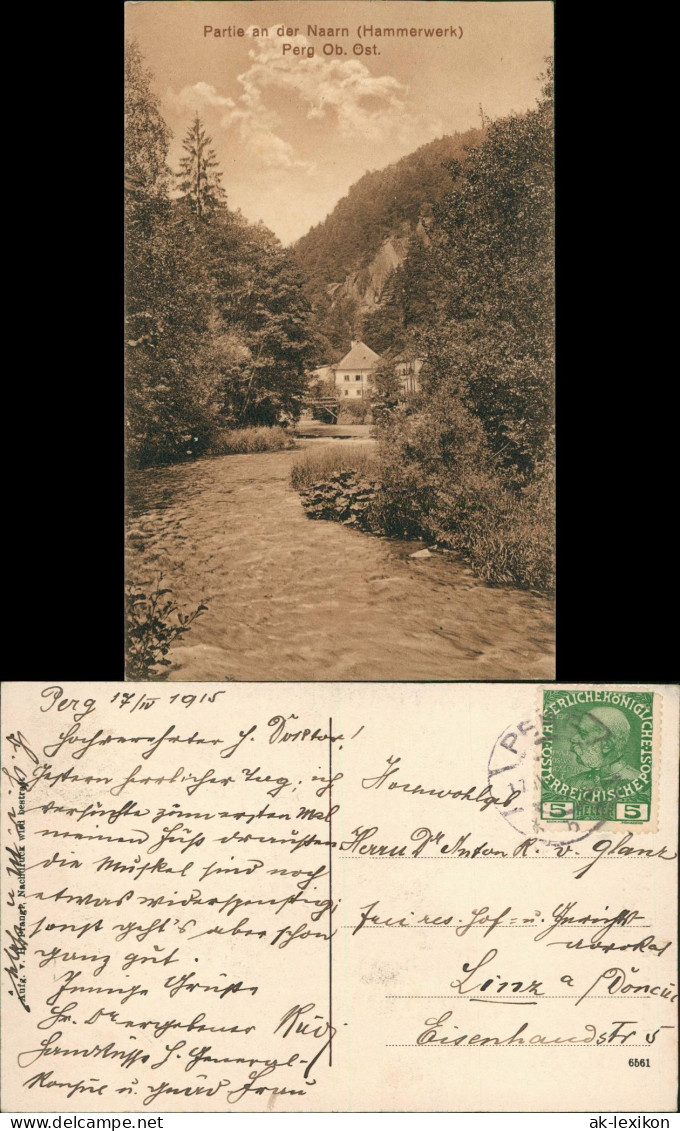 Partie an der Naarn (Hammerwerk)
Perg Ob. Öst.
Perg 17/IV 1915
Hochverehrter H. Doktor!
Gestern herrlicher Tag; ich
versuchte zum ersten Mal
meinen Fuß draußen
die Muskel sind noch
etwas widerspenstig;
sonst geht's aber schon
ganz gut.
Innige Grüße
Ihr Dr ergebener Rudi
Handküsse H. General-
Konsul u. gnäd Frau
Aufg. v. Nachdruck wird bestraft
PERG
KAISERLICHE KÖNIGLICHE
ÖSTERREICHISCHE POST
5 HELLER 5
Hochwohlgeb
Herrn Dr. Anton R. v. Glanz
frei res. Hof- u. Gerichts
advokat
Linz a/Donau
Eisenhandstr 5
6561
www.delcampe.net
ak-lexikon